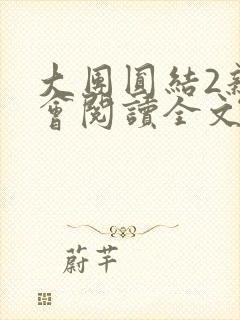 大團圓結2新
會閱讀全文
蔚芊